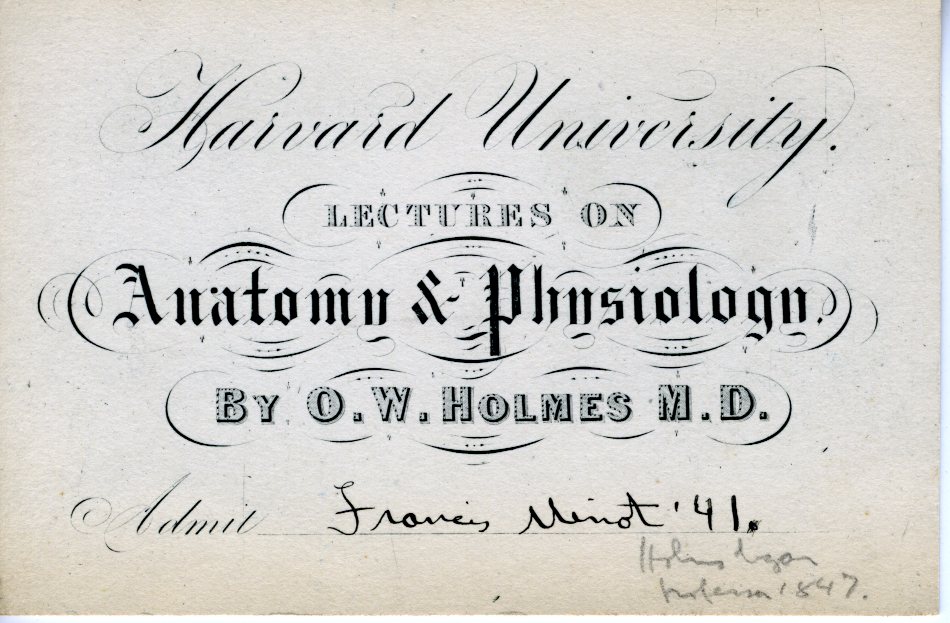 Harvard University.
LECTURES ON
Anatomy & Physiology.
BY O. W. HOLMES M. D.
Admit Francis Minot '41.
Holmes began
professor 1847.